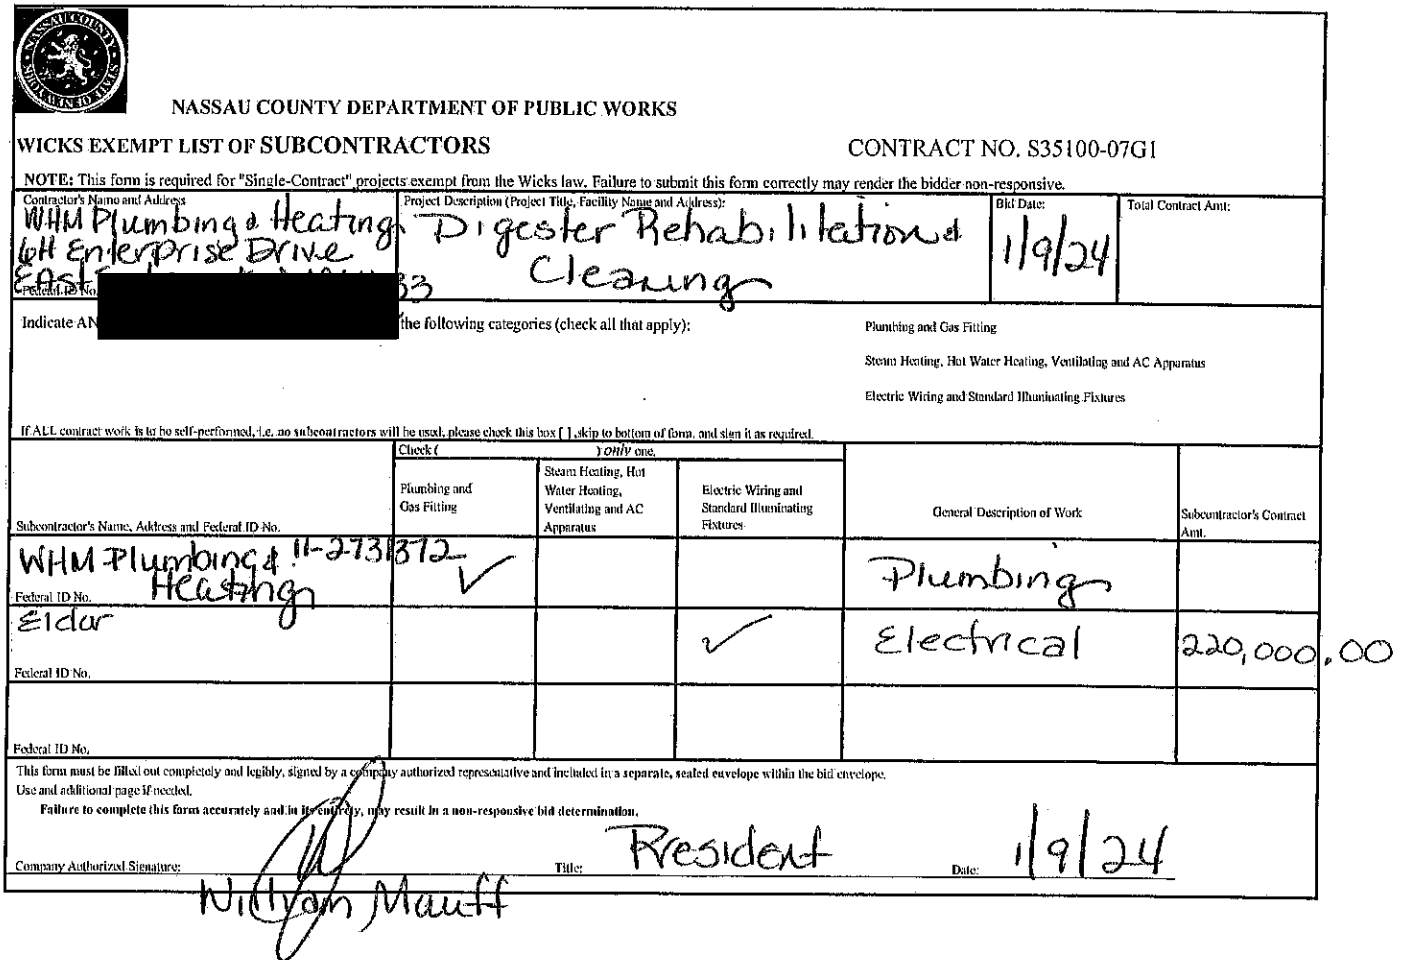 NASSAU COUNTY
NASSAU COUNTY DEPARTMENT OF PUBLIC WORKS
WICKS EXEMPT LIST OF SUBCONTRACTORS
CONTRACT NO. S35100-07G1
NOTE: This form is required for "Single-Contract" projects exempt from the Wicks law. Failure to submit this form correctly may render the bidder non-responsive.
Contractor's Name and Address
WHM Plumbing & Heating
6H Enterprise Drive
East
Federal ID No.
33
Project Description (Project Title, Facility Name and Address):
Digester Rehabilitation &
Cleaning
Bid Date:
1/9/24
Total Contract Amt:
Indicate AN
the following categories (check all that apply):
Plumbing and Gas Fitting
Steam Heating, Hot Water Heating, Ventilating and AC Apparatus
Electric Wiring and Standard Illuminating Fixtures
If ALL contract work is to be self-performed, i.e. no subcontractors will be used, please check this box [ ], skip to bottom of form, and sign it as required.
Check ( ) only one.
Subcontractor's Name, Address and Federal ID No.
Plumbing and
Gas Fitting
Steam Heating, Hot
Water Heating,
Ventilating and AC
Apparatus
Electric Wiring and
Standard Illuminating
Fixtures
General Description of Work
Subcontractor's Contract
Amt.
WHM Plumbing & 11-2731372
Heating
Federal ID No.
✓
Plumbing
Eldor
Federal ID No.
✓
Electrical
220,000.00
Federal ID No.
This form must be filled out completely and legibly, signed by a company authorized representative and included in a separate, sealed envelope within the bid envelope.
Use and additional page if needed.
Failure to complete this form accurately and in its entirety, may result in a non-responsive bid determination.
Company Authorized Signature:
Title: President
Date: 1/9/24
William Mauff